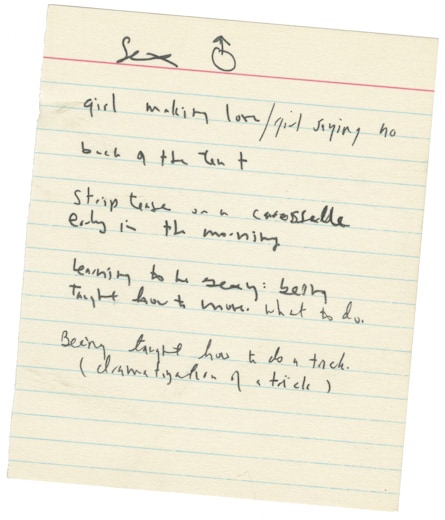 Sex ♂
girl making love/girl saying no
back of the tent
Strip tease on a carousselle
early in the morning
learning to be sexy: being
taught how to move. what to do.
Being taught how to do a trick.
(dramatization of a trick)